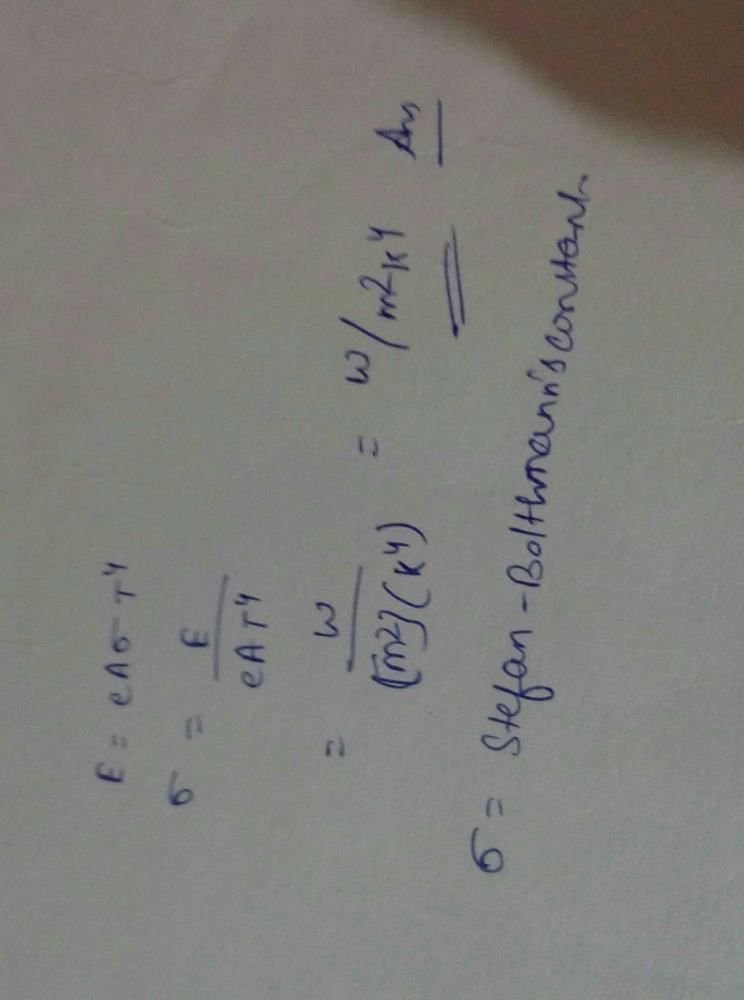 E = eAσT⁴
σ = E / eAT⁴
= W / [m²](K⁴) = W/m²K⁴ Ans
σ = Stefan-Bolthmann's constant.